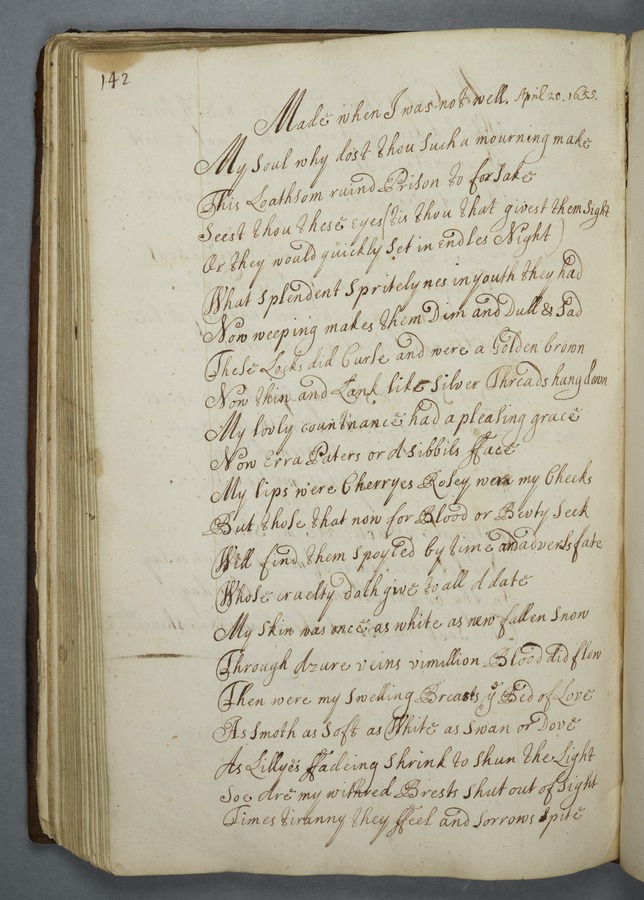 142
Made when I was not well. April 20. 1655.
My Soul why dost thou Such a mourning make
This Loathsom ruind Prison to forsake
Seest thou these eyes (tis thou that givest them Sight
Or they would quickly Set in Endles Night)
What Splendent Spritelynes in youth they had
Now weeping makes them Dim and Dull & Sad
These Locks did Curle and were a Golden brown
Now thin and Lank like Silver Threads hang down
My lovly countnance had a pleasing grace
Now Erra Paters or A Sibbils fface
My lips were Cherryes Rosey were my Cheeks
But those that now for Blood or Bevty Seek
Will find them Spoyled by time and adversfs fate
Whose cruelty doth give to all A date
My Skin was once as white as new fallen Snow
Through Azure veins vimillion Blood did flow
Then were my Swelling Breasts ye Bed of Love
As Smoth as Soft as White as Swan or Dove
As Lillyes ffadeing Shrink to Shun the Light
Soe Are my withred Brests Shut out of Sight
Times tiranny they ffeel and Sorrows Spite